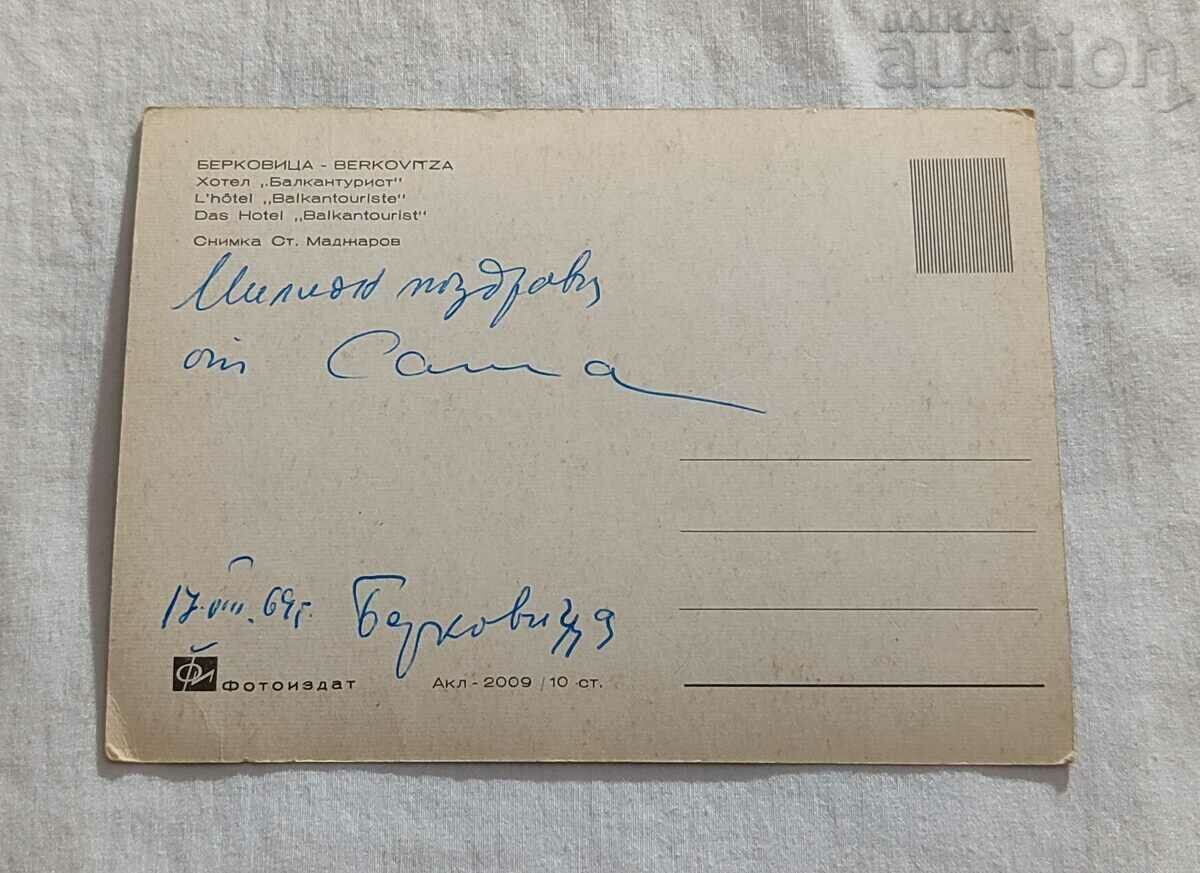 BALKAN
auction
БЕРКОВИЦА - BERKOVITZA
Хотел „Балкантурист"
L'hôtel „Balkantouriste"
Das Hotel „Balkantourist"
Снимка Ст. Маджаров
поздрави
от Саша
17.VIII.69г. Берковица
Фотоиздат Акл - 2009 / 10 ст.